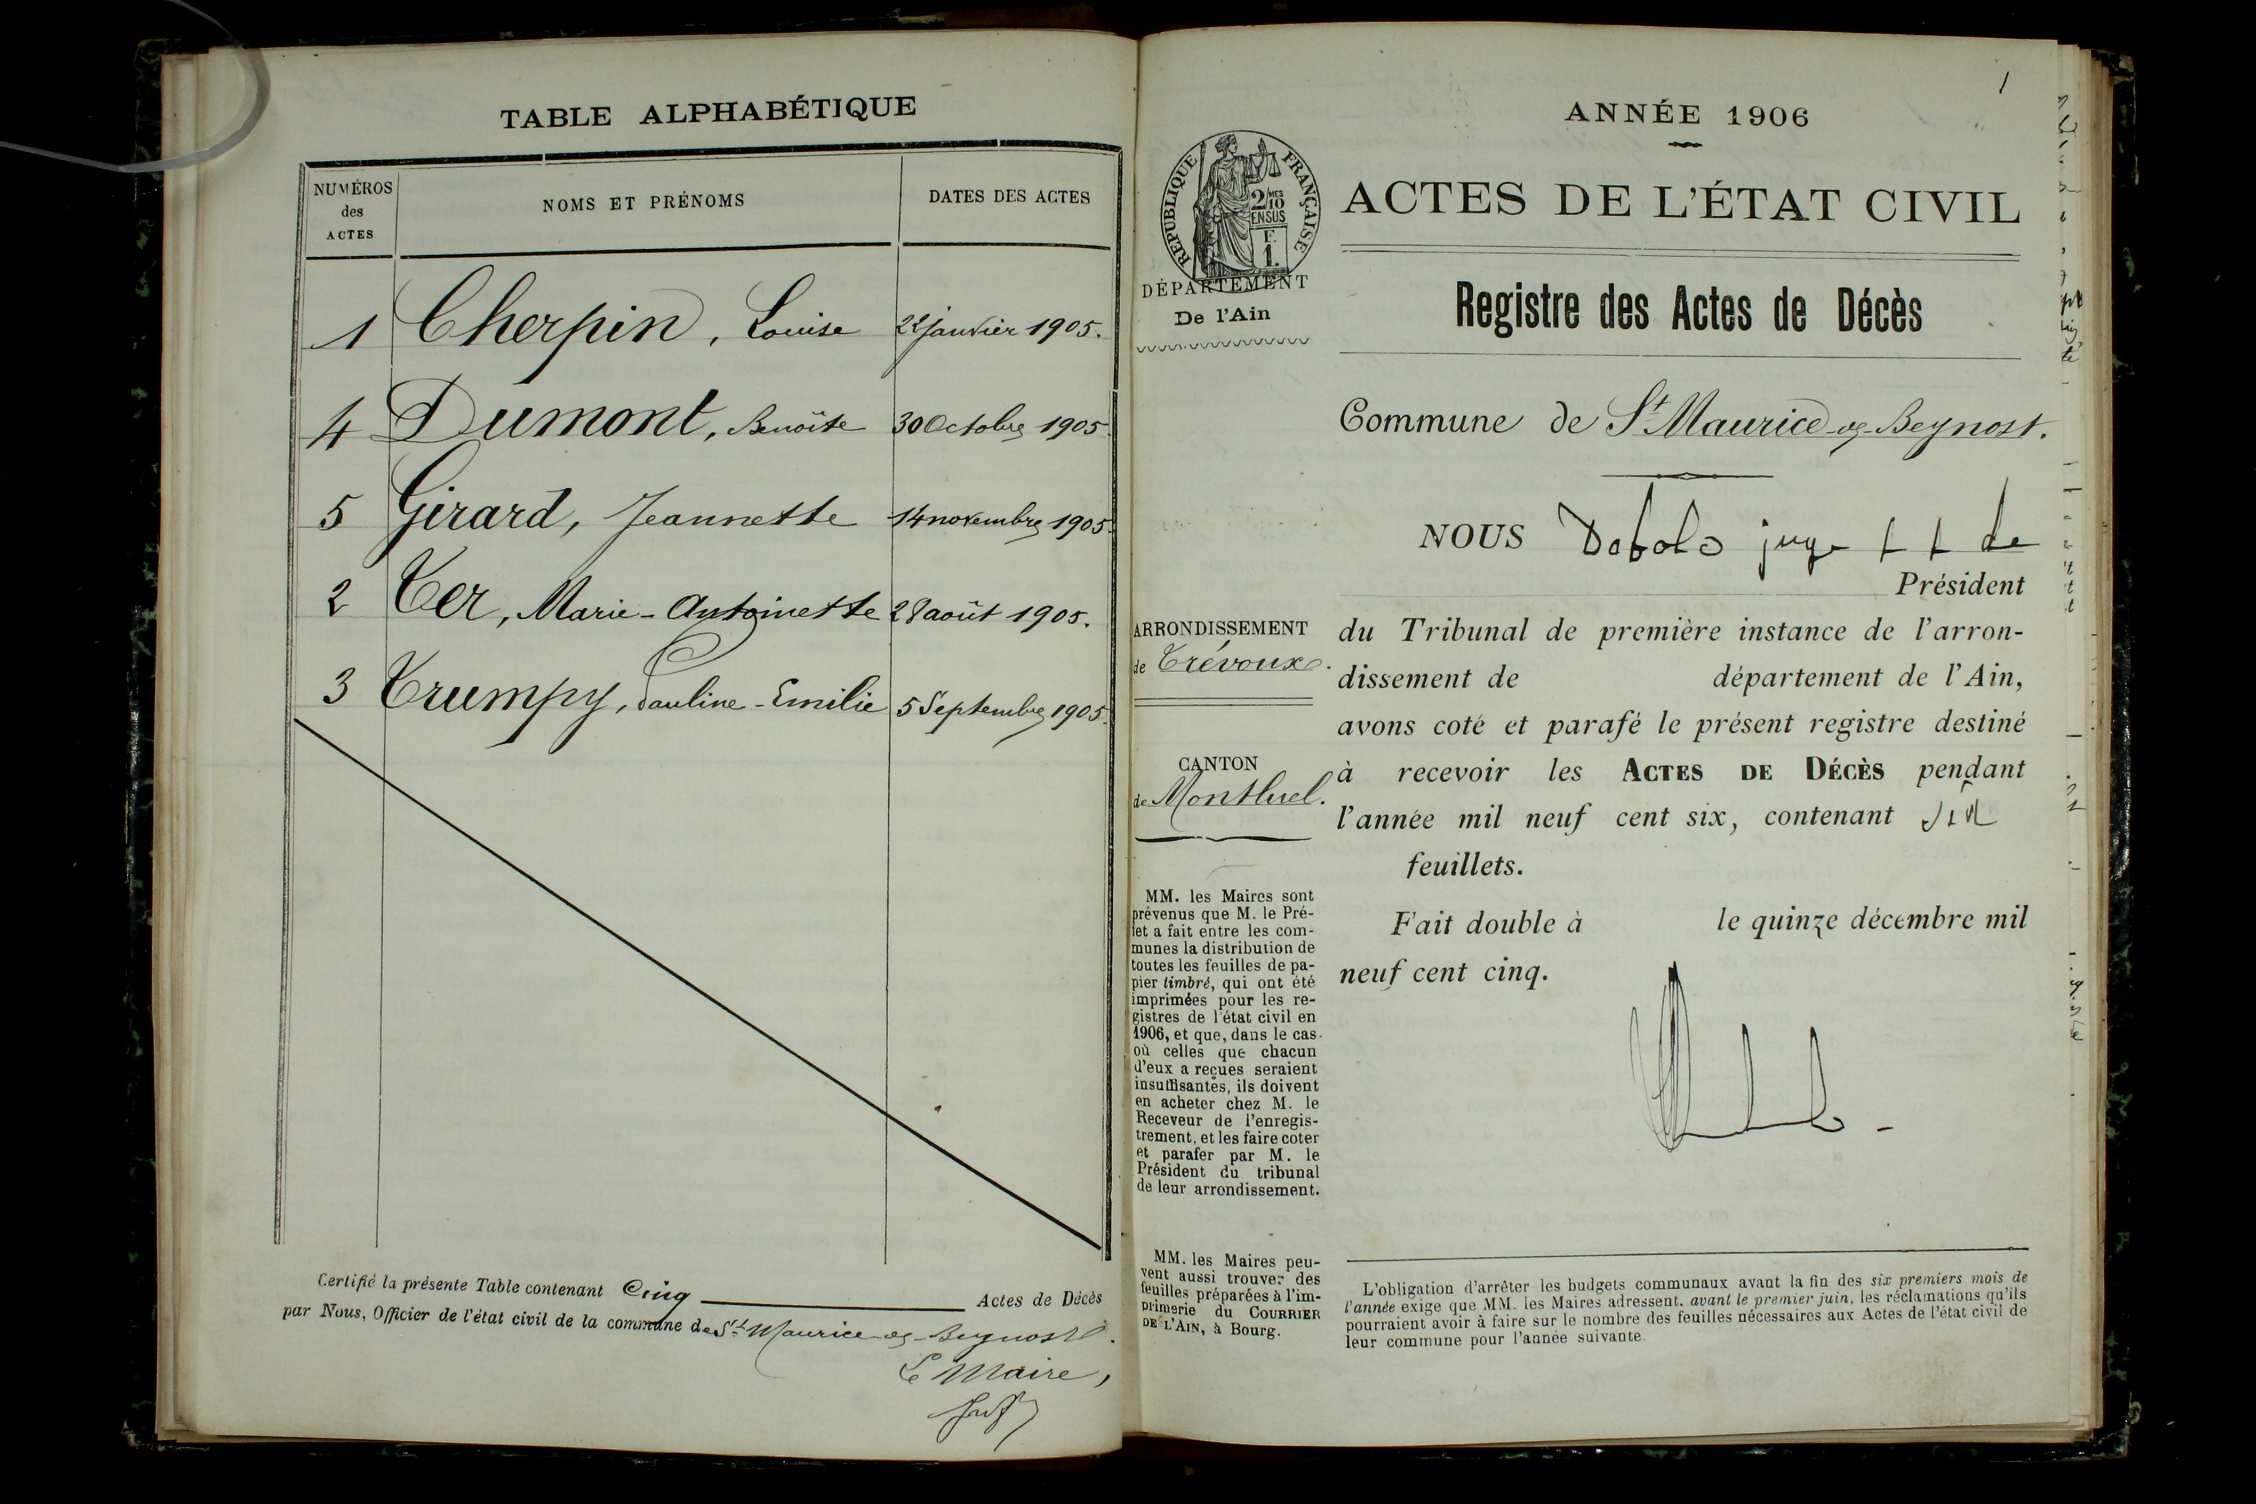 TABLE ALPHABÉTIQUE
NUMÉROS
des
ACTES
NOMS ET PRÉNOMS
DATES DES ACTES
1 Cherpin, Louise 22 janvier 1905.
4 Dumont, Benoîte 30 Octobre 1905.
5 Girard, Jeannette 14 novembre 1905.
2 Ter, Marie-Antoinette 28 août 1905.
3 Trumpy, Pauline-Emilie 5 Septembre 1905.
Certifié la présente Table contenant Cinq Actes de Décès
par Nous, Officier de l'état civil de la commune de St Maurice-de-Beynost.
Le Maire,
1
ANNÉE 1906
RÉPUBLIQUE FRANÇAISE
2/10 MES
EN SUS
F.
1.
DÉPARTEMENT
De l'Ain
ACTES DE L'ÉTAT CIVIL
Registre des Actes de Décès
Commune de St Maurice-de-Beynost.
NOUS juge de
Président
du Tribunal de première instance de l'arron-
dissement de département de l'Ain,
avons coté et parafé le présent registre destiné
à recevoir les ACTES DE DÉCÈS pendant
l'année mil neuf cent six, contenant six
feuillets.
Fait double à le quinze décembre mil
neuf cent cinq.
ARRONDISSEMENT
de Trévoux.
CANTON
de Montluel.
MM. les Maires sont
prévenus que M. le Pré-
fet a fait entre les com-
munes la distribution de
toutes les feuilles de pa-
pier timbré, qui ont été
imprimées pour les re-
gistres de l'état civil en
1906, et que, dans le cas
où celles que chacun
d'eux a reçues seraient
insuffisantes, ils doivent
en acheter chez M. le
Receveur de l'enregis-
trement, et les faire coter
et parafer par M. le
Président du tribunal
de leur arrondissement.
MM. les Maires peu-
vent aussi trouver des
feuilles préparées à l'im-
primerie du COURRIER
DE L'AIN, à Bourg.
L'obligation d'arrêter les budgets communaux avant la fin des six premiers mois de
l'année exige que MM. les Maires adressent, avant le premier juin, les réclamations qu'ils
pourraient avoir à faire sur le nombre des feuilles nécessaires aux Actes de l'état civil de
leur commune pour l'année suivante.